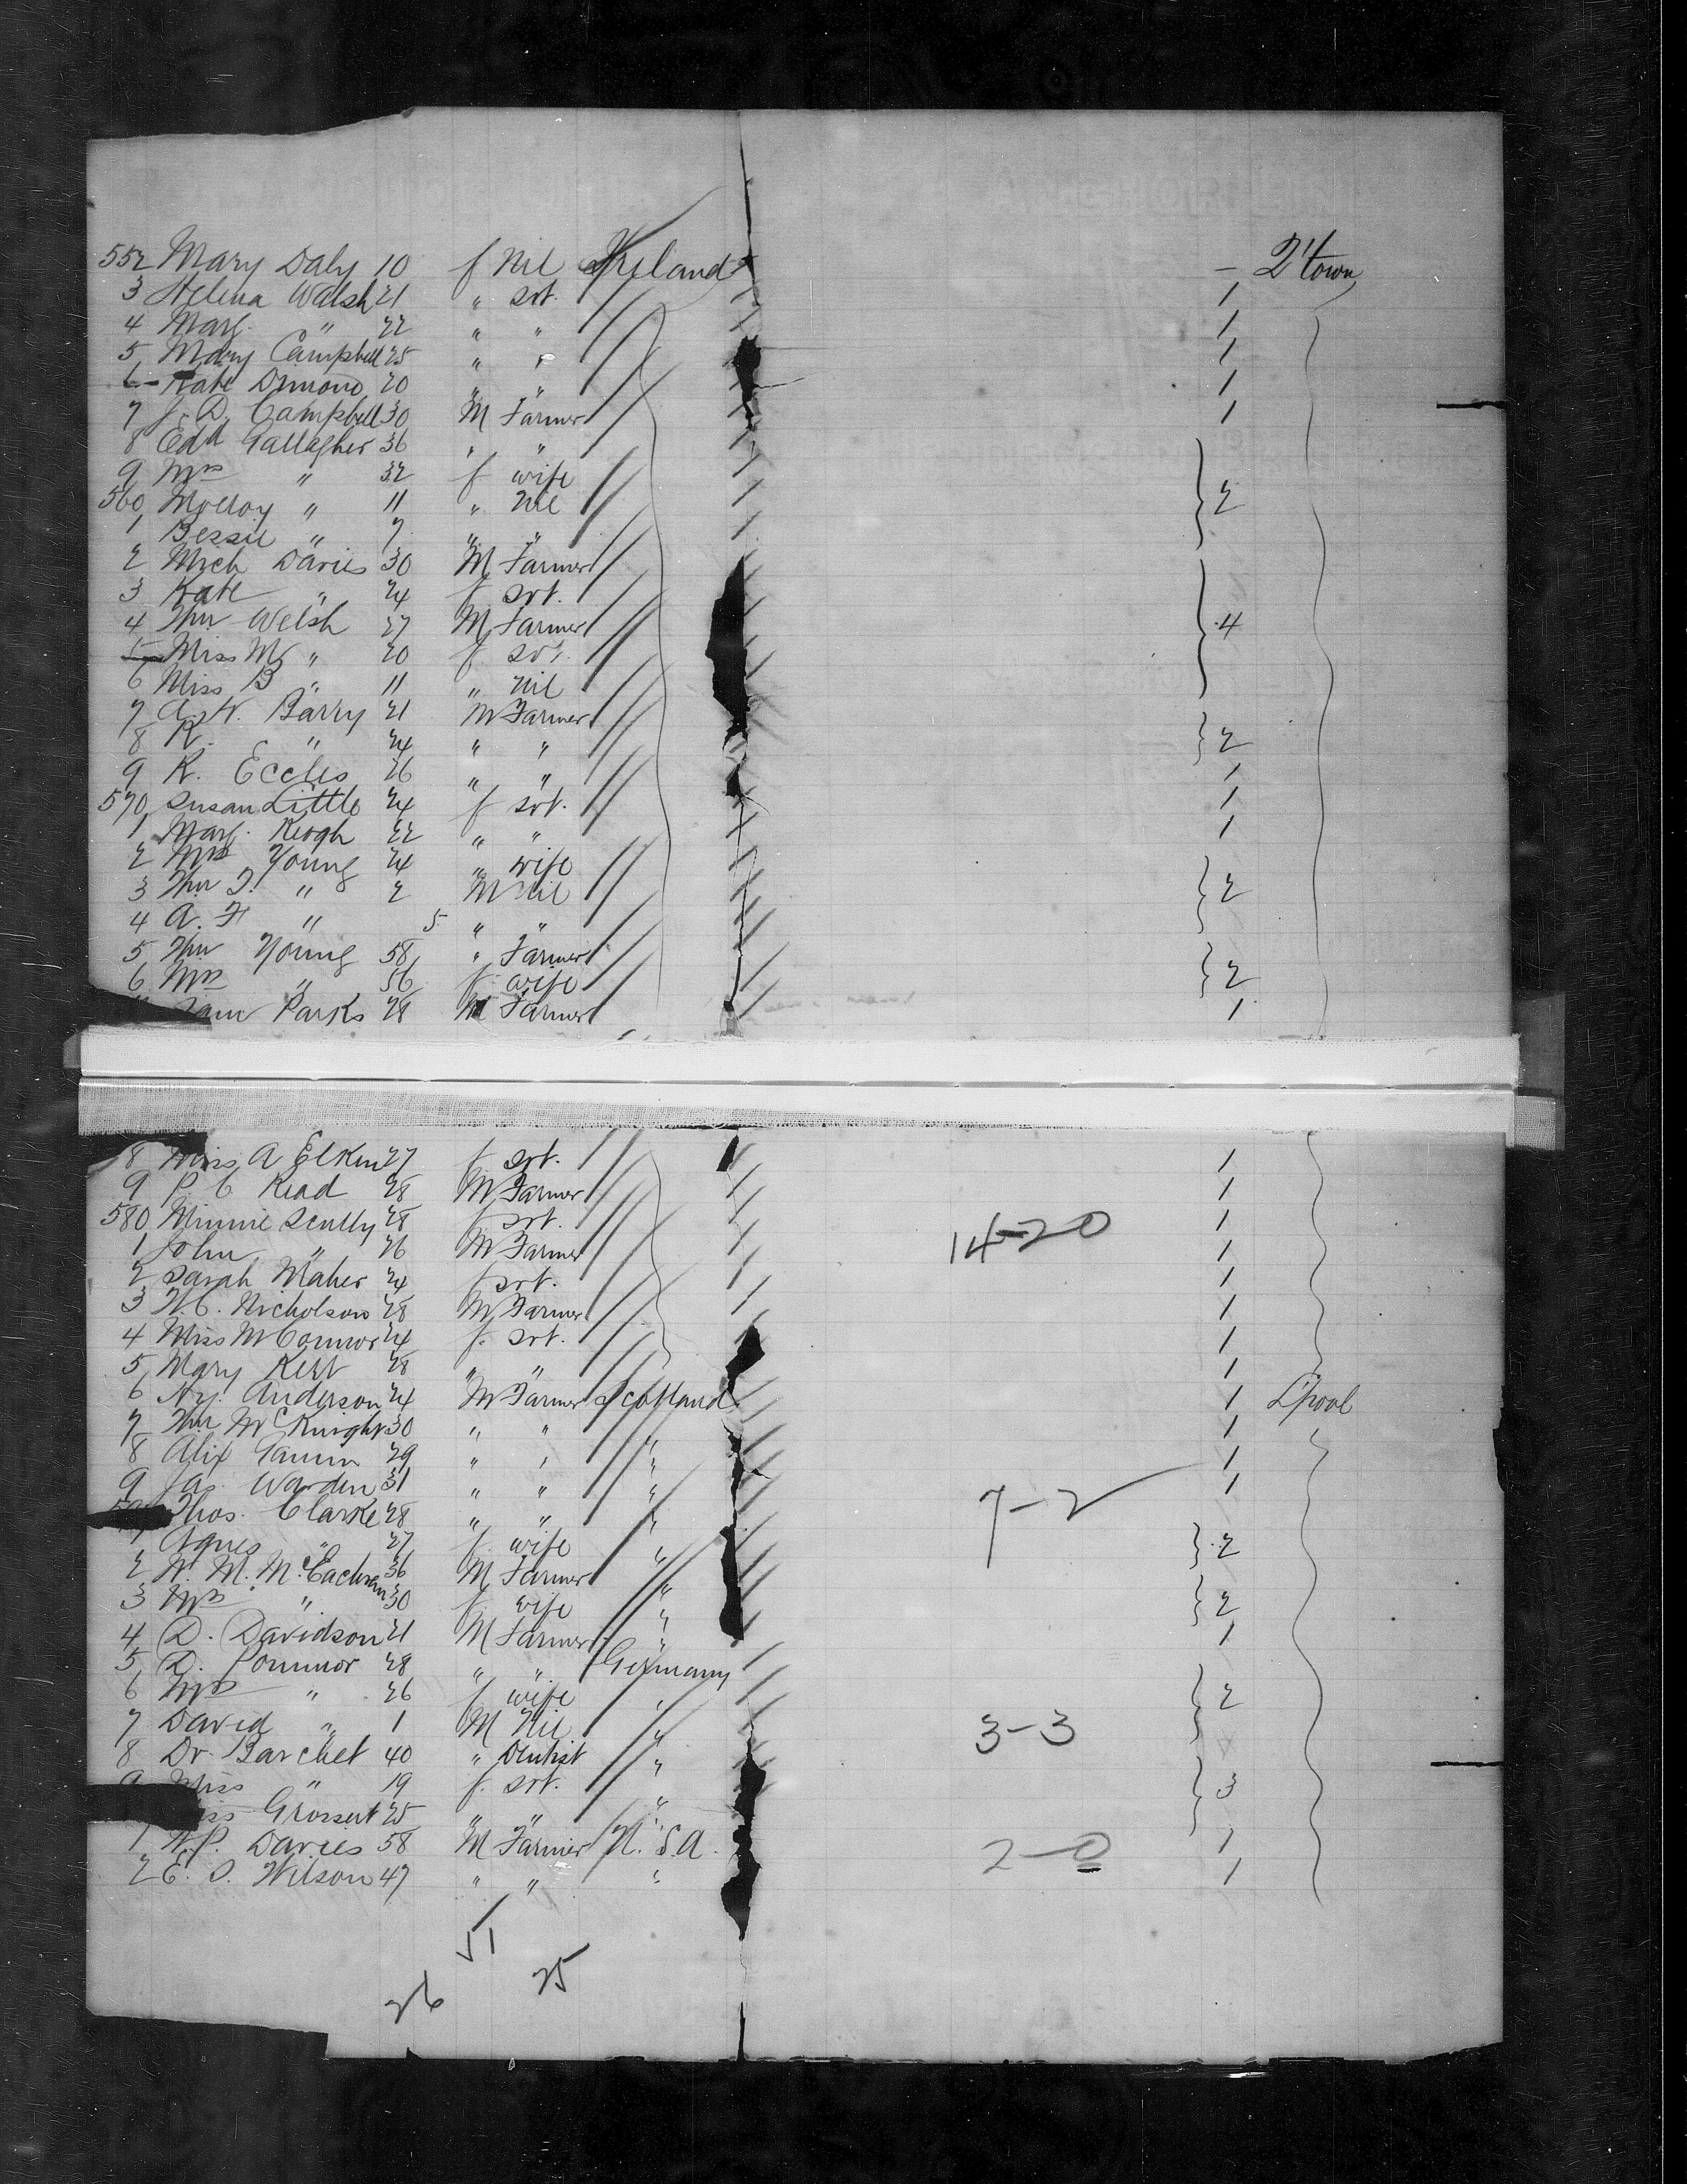 552 Mary Daly 10 f Nil Ireland - Q'town
3 Helena Walsh 21 " Svt. 1
4 Marg. " 22 " " 1
5 Mary Campbell 25 " " 1
6 Kate Dimond 20 " " 1
7 J. D. Campbell 30 M Farmer 1
8 Edd Gallagher 36 " "
9 Mrs " 32 f wife
560 " 11 " Nil 2
1 Bessie " 7 " "
2 Mich Davies 30 M Farmer
3 Kate " 24 f Svt.
4 Thos Welsh 27 M Farmer 4
5 Miss M " 20 f Svt.
6 Miss B " 11 " Nil
7 Barry 21 M Farmer
8 R. " 24 " " 2
9 R. Eccles 26 " " 1
570 Susan Little 24 f Svt. 1
1 Marg. Keogh 22 " " 1
2 Mrs Young 24 " wife
3 " 2 M Nil 2
4 A. " 5 " "
5 Young 58 " Farmer
6 Mrs " 56 f wife 2
Parks 28 M Farmer 1
8 Miss A Elkin 27 f Svt. 1
9 P. C Read 28 M Farmer 1
580 Minnie Scully 28 f Svt. 14-20 1
1 John " 26 M Farmer 1
2 Sarah Maher 24 f Svt. 1
3 Nicholson 28 M Farmer 1
4 Miss M Connor 24 f. Svt. 1
5 Mary Kerr 28 " " 1
6 Hy. Anderson 24 M Farmer Scotland 1 L'pool
7 McKnight 30 " " " 1
8 29 " " " 1
9 Jas. Warden 31 " " " 1
Thos. Clarke 28 " " " 7-2
1 Agnes " 27 f. wife " 2
2 W. M. McEachran 36 M Farmer "
3 Mrs " 30 f. wife " 2
4 D. Davidson 21 M Farmer " 1
5 D. 28 " " Germany
6 Mrs " 26 f wife " 2
7 David " 1 M Nil " 3-3
8 Dr. Barchet 40 " Dentist "
9 Miss " 19 f. Svt. " 3
Grossert 25 " " "
1 W. P. Davies 58 M Farmer U.S.A. 2-0 1
2 E. S. Wilson 47 " " " 1
51
26 25